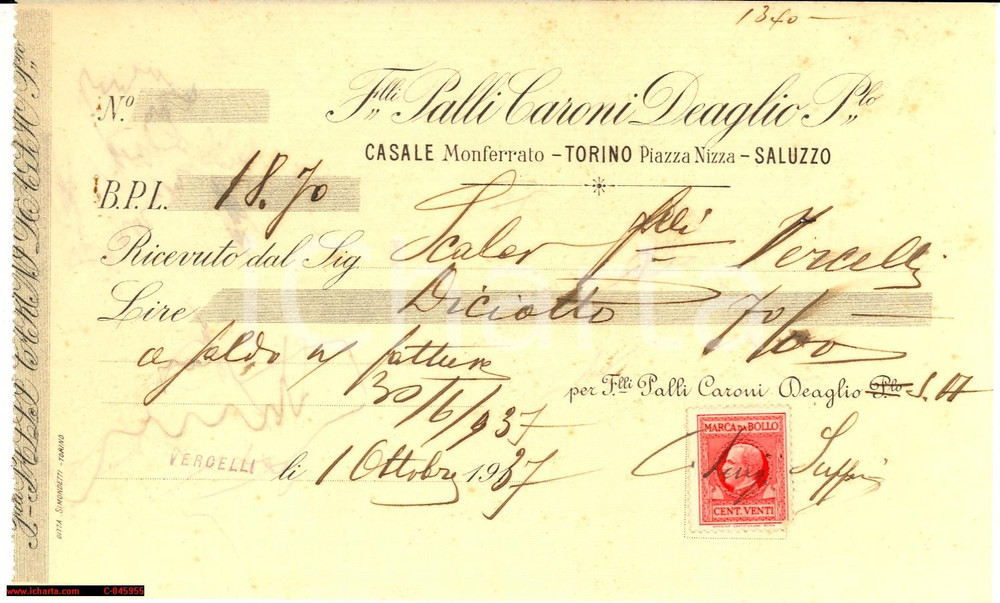 1340 —
N.º
F.lli Palli Caroni Deaglio P.lo
CASALE Monferrato – TORINO Piazza Nizza – SALUZZO
B.P.L. 18.70
Ricevuto dal Sig. Scaler f.lli Vercelli
Lire Diciotto 70/100 —
a saldo n/ fattura
30/6/937
per F.lli Palli Caroni Deaglio P.lo
VERCELLI li 1 Ottobre 1937
MARCA DA BOLLO
CENT. VENTI
DITTA SIMONDETTI - TORINO
icharta
www.icharta.com C-045955